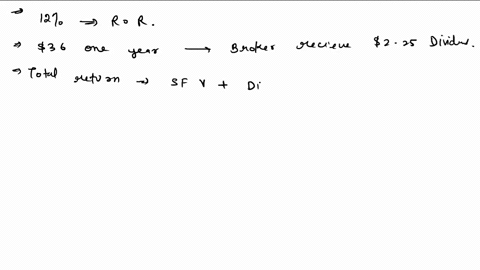 → 12% ⇒ R o R.
⇒ $36 one year → Broker recieve $2.25 Dividen.
⇒ Total return → SF V + Di